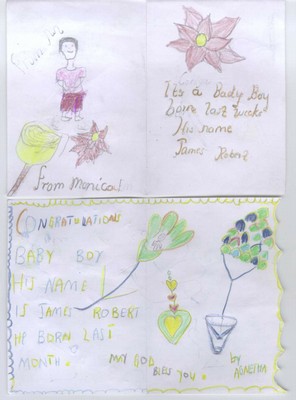 It's a Baby Boy
born last week
His name
James Robert
from Monica
CONGRATULATIONS
BABY BOY
HIS NAME
IS JAMES ROBERT
HE BORN LAST
MONTH.
MY GOD
BLES YOU.
by